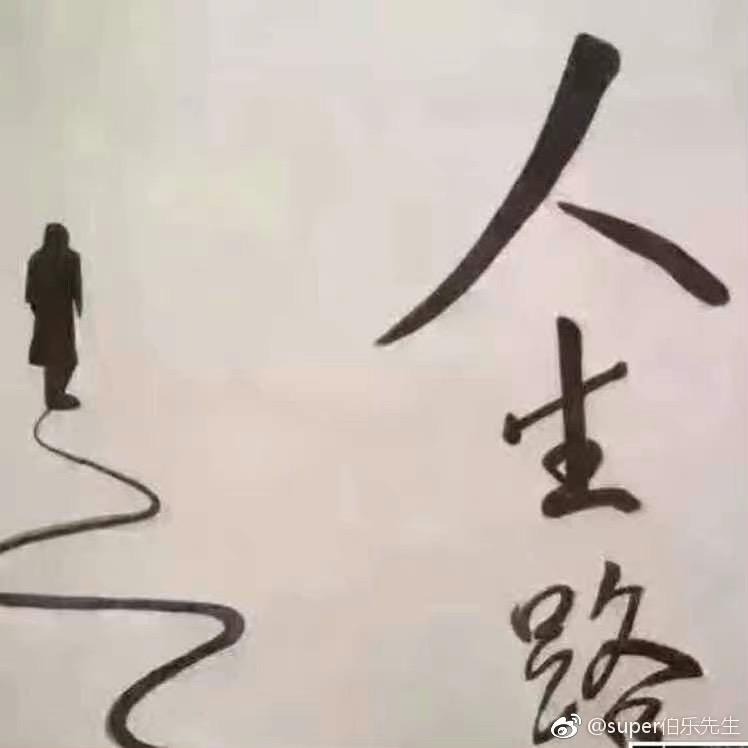 人生路
@super伯乐先生